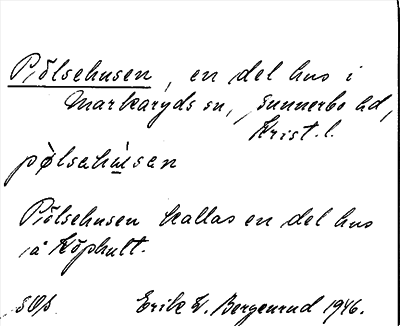 Pölsehusen, en del hus i
Markaryds sn, Sunnerbo hd,
Krist. l.
pø̀lsehu̲sen
Pölsehusen kallas en del hus
i Köphult.
SOp Erik W. Bergenrud 1946.